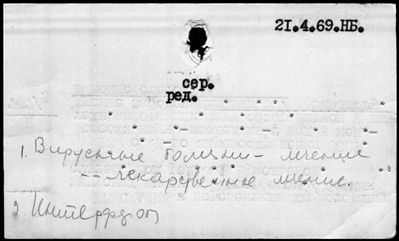 21.4.69.НБ.
сер.
ред.
1. Вирусные болезни – лечение
-- лекарственное лечение.
2. Интерферон